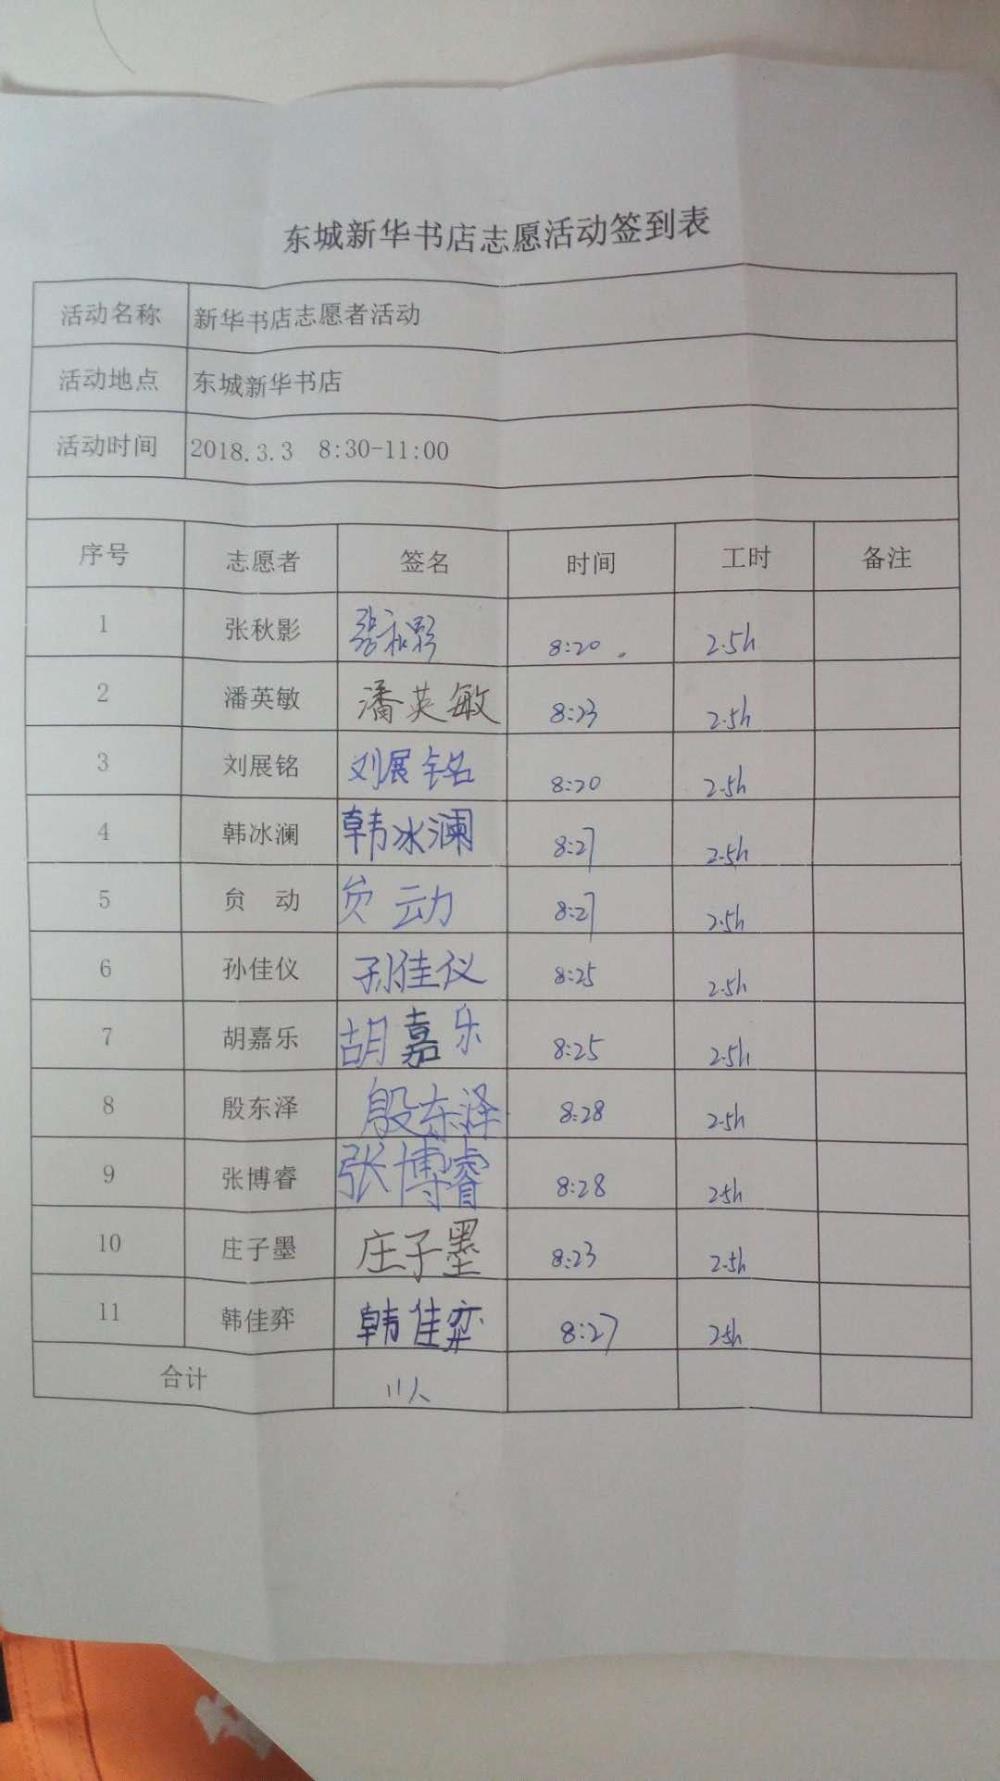 东城新华书店志愿活动签到表
活动名称 新华书店志愿者活动
活动地点 东城新华书店
活动时间 2018.3.3 8:30-11:00
序号 志愿者 签名 时间 工时 备注
1 张秋影 張秋影 8:20 . 2.5h
2 潘英敏 潘英敏 8:23 2.5h
3 刘展铭 刘展铭 8:20 2.5h
4 韩冰澜 韩冰澜 8:27 2.5h
5 贠 动 贠动 8:27 2.5h
6 孙佳仪 孙佳仪 8:25 2.5h
7 胡嘉乐 胡嘉乐 8:25 2.5h
8 殷东泽 殷东泽 8:28 2.5h
9 张博睿 张博睿 8:28 2.5h
10 庄子墨 庄子墨 8:23 2.5h
11 韩佳弈 韩佳弈 8:27 2.5h
合计 11人